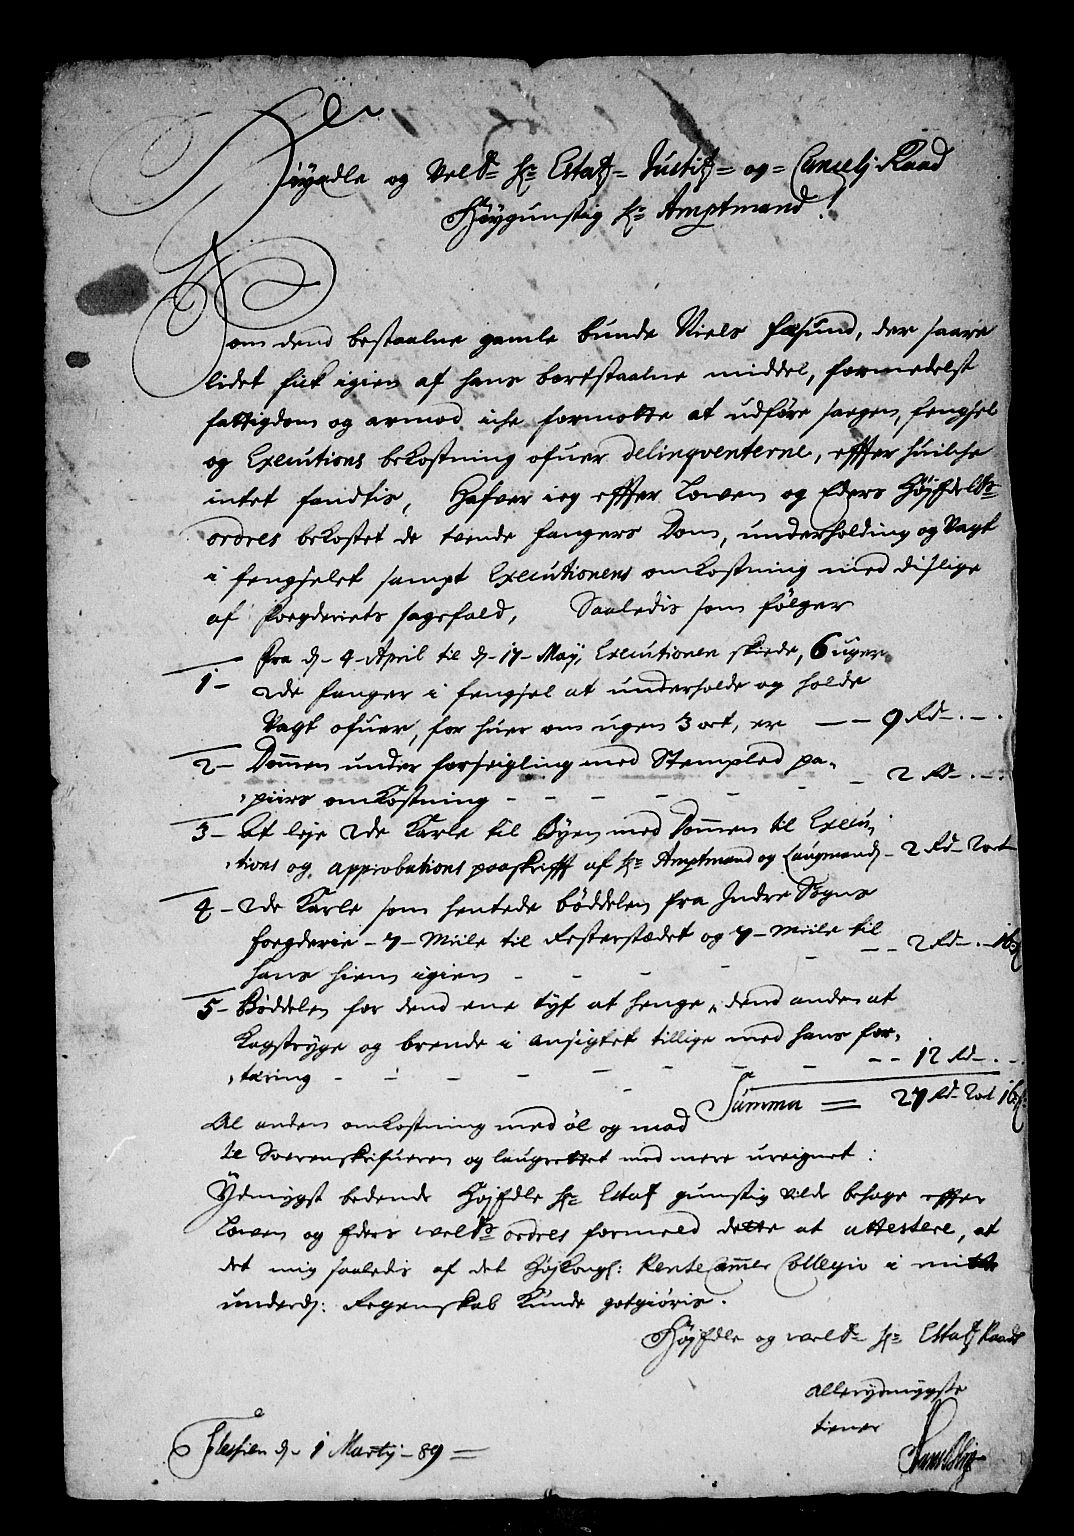 Høyædle og Velb: Hr: Estatz- Justitz- og Cancelj Raad
Høygunstig Hr: Amptmand!
Som dend bestaalne gamle bunde Niels Fæsund, der saare
lidet fick igien af hans bortstaalne middel, formedelst
fattigdom og armod iche formotte at udføre sagen, fengsel
og Executions bekostning ofuer delinqventerne, effter huilche
intet fandtis, Hafver ieg effter Lowen og Eders Høyædelhds
ordres bekostet de tvende fangers Dom, underholding og Vagt
i fengselet sampt Executionens omkostning med dislige
af foegderiets sagefald, Saaledis som følger
1- Fra d- 4- April til d- 17- Maij, Executionen skiede, 6 uger
2de fanger i fengsel at underholde og holde
Vagt ofuer, for huer om ugen 3 ort, er — — 9 Rd-.-.
2- Dommen under forseigling med Stempled pa-
piirs omkostning - - - - - - 2 Rd-.-.
3- At leje 2de Karle til Byen med Dommen til Execu-
tions og approbations paaskrifft af Hr: Amptmand og Laugmand - 2 Rd- 2ort
4- 2de Karle som hentede bøddelen fra Indre Sogns
foegderie - 7- Miile til Resterstædet og 7- Miile til
hans hiem igien - - - - - - 2 Rd-.-16ß
5- Bøddelen for dend ene tyf at henge, dend anden at
Kagstryge og brende i ansigtet tillige med hans for-
tæring - - - - - - - 12 Rd-.-
Summa = 27 Rd- 2ort 16ß:
Al anden omkostning med øl og mad
til Sorenskrifueren og laugrettet med mere ureignet:
Ydmygst bedende Høyædle Hr: Estatz gunstig vilde behage effter
Lowen og Eders velbs ordres formeld dette at attestere, at
det mig saaledis af det Høykongl: RenteCammer Collegio i mitt
underd: Regenskab Kunde gotgiøris.
Høyædle og velb: Hr: Estatz Raads
allerydmygste
tiener
d- 1 Martij- 89=